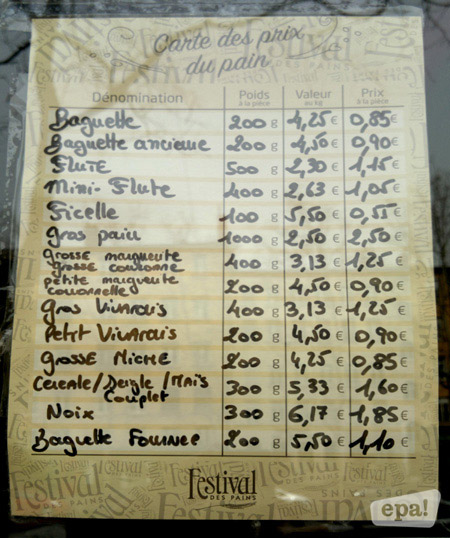 Carte des prix
du pain
Dénomination Poids à la pièce Valeur au kg Prix à la pièce
Baguette 200 g 4,25 € 0,85 €
Baguette ancienne 200 g 4,50 € 0,90 €
FLUTE 500 g 2,30 € 1,15 €
Mini-Flute 400 g 2,63 € 1,05 €
Ficelle 100 g 5,50 € 0,55 €
gros pain 1000 g 2,50 € 2,50 €
grosse marguerite
grosse couronne 400 g 3,13 € 1,25 €
petite marguerite
couronnette 200 g 4,50 € 0,90 €
gros Vivarais 400 g 3,13 € 1,25 €
Petit Vivarais 200 g 4,50 € 0,90 €
GROSSE MICHE 200 g 4,25 € 0,85 €
Cereale/Seigle/Maïs
Complet 300 g 5,33 € 1,60 €
Noix 300 g 6,17 € 1,85 €
Baguette Fournee 200 g 5,50 € 1,10 €
Festival
DES PAINS
epa!